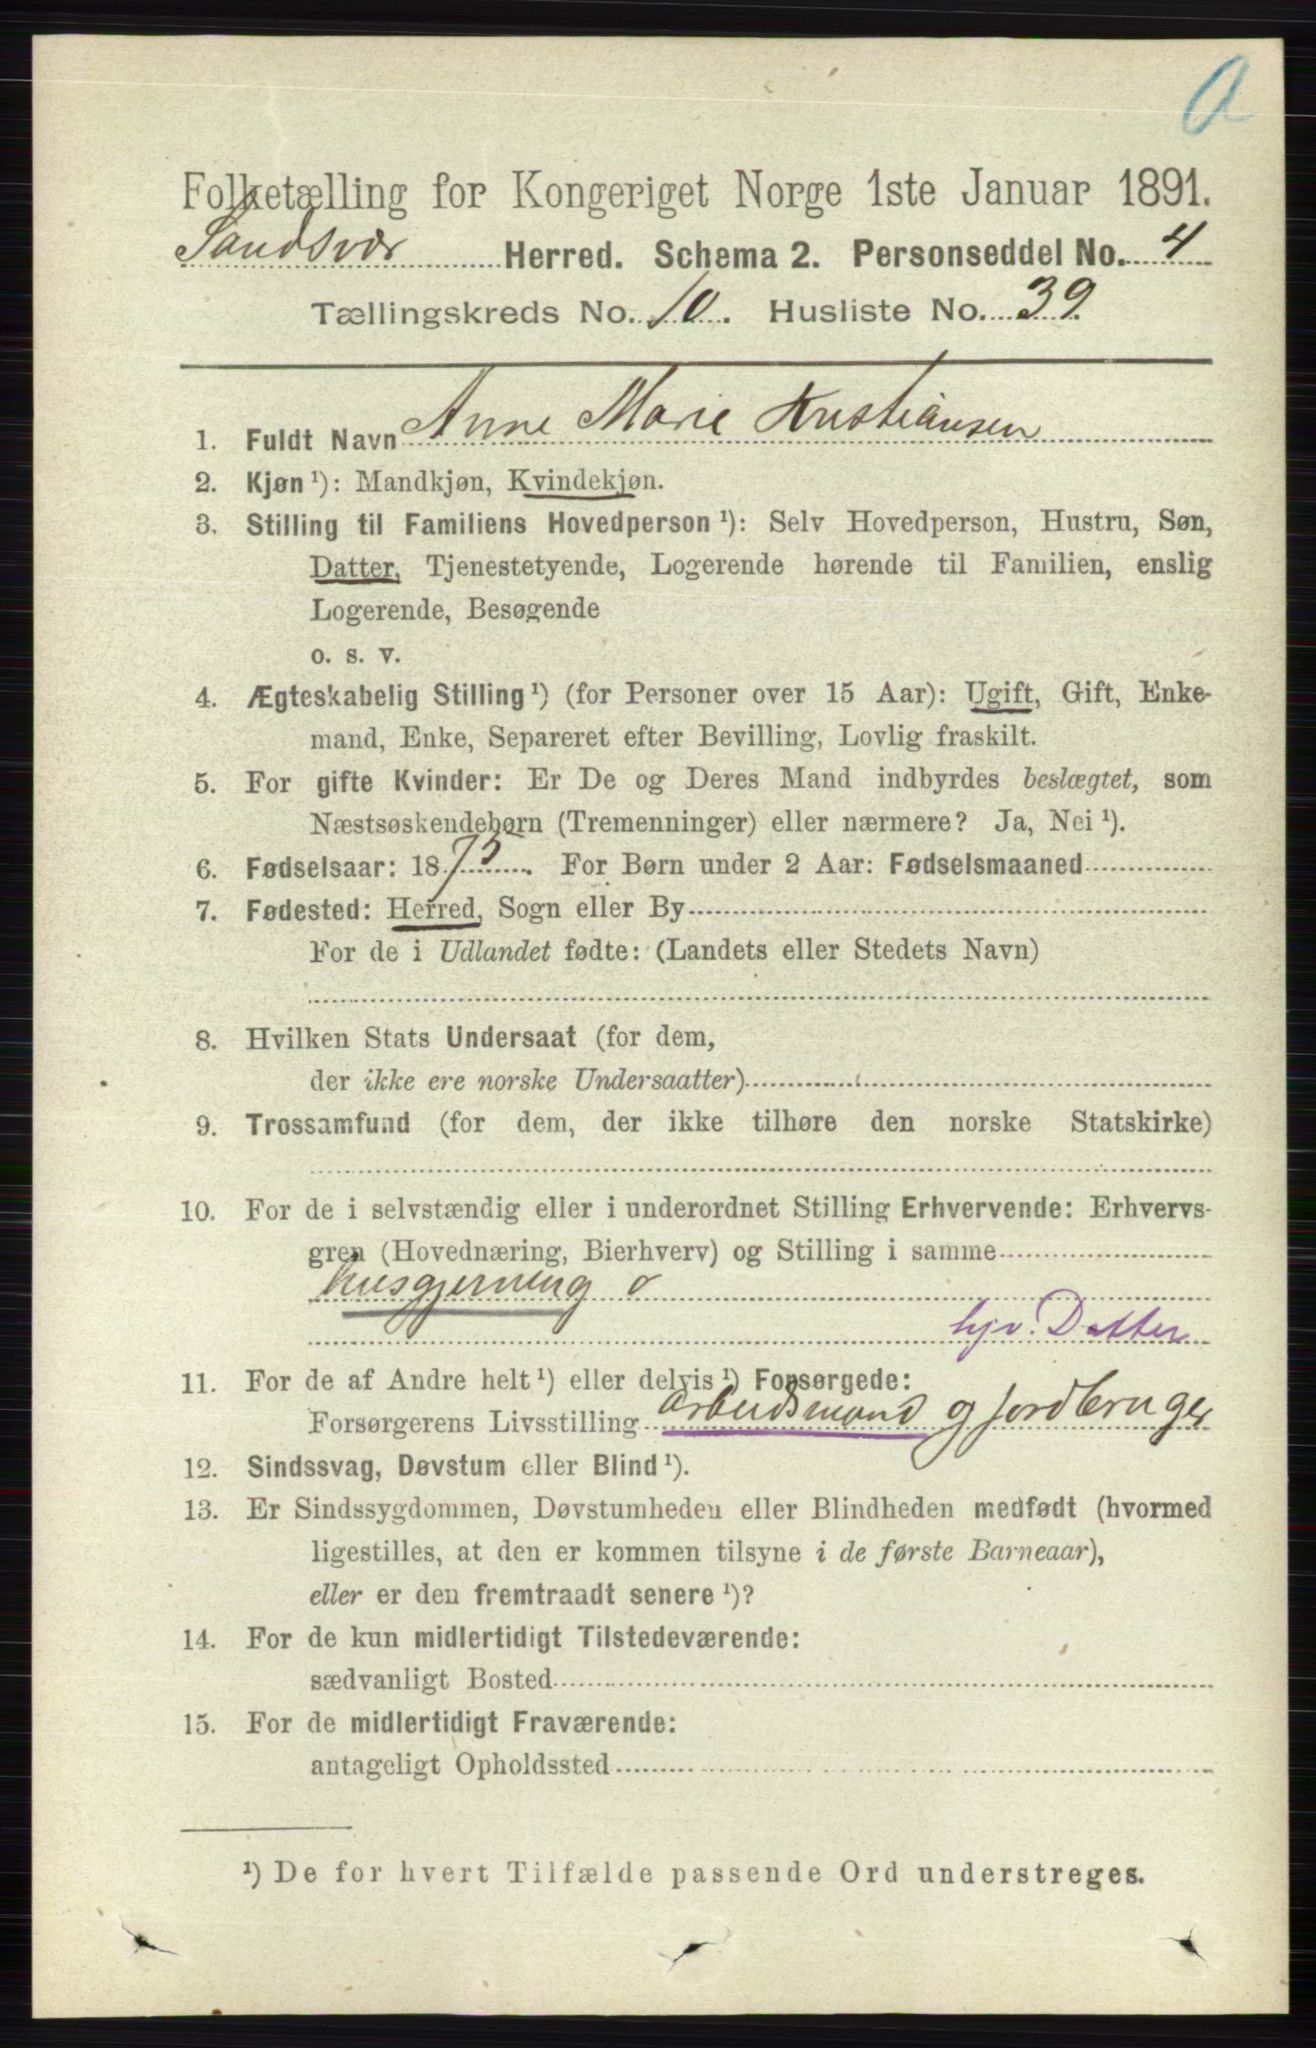 a
Folketælling for Kongeriget Norge 1ste Januar 1891.
Sandsvær Herred. Schema 2. Personseddel No. 4
Tællingskreds No. 10. Husliste No. 39
1. Fuldt Navn Anne Marie Kristiansen
2. Kjøn ¹): Mandkjøn, Kvindekjøn.
3. Stilling til Familiens Hovedperson ¹): Selv Hovedperson, Hustru, Søn,
Datter, Tjenestetyende, Logerende hørende til Familien, enslig
Logerende, Besøgende
o. s. v.
4. Ægteskabelig Stilling ¹) (for Personer over 15 Aar): Ugift, Gift, Enke-
mand, Enke, Separeret efter Bevilling, Lovlig fraskilt.
5. For gifte Kvinder: Er De og Deres Mand indbyrdes beslægtet, som
Næstsøskendebørn (Tremenninger) eller nærmere? Ja, Nei ¹).
6. Fødselsaar: 1875. For Børn under 2 Aar: Fødselsmaaned
7. Fødested: Herred, Sogn eller By
For de i Udlandet fødte: (Landets eller Stedets Navn)
8. Hvilken Stats Undersaat (for dem,
der ikke ere norske Undersaatter)
9. Trossamfund (for dem, der ikke tilhøre den norske Statskirke)
10. For de i selvstændig eller i underordnet Stilling Erhvervende: Erhvervs-
gren (Hovednæring, Bierhverv) og Stilling i samme
husgjerning o
hjv. Datter
11. For de af Andre helt ¹) eller delvis ¹) Forsørgede:
Forsørgerens Livsstilling arbeidsmand og jordbruger
12. Sindssvag, Døvstum eller Blind ¹).
13. Er Sindssygdommen, Døvstumheden eller Blindheden medfødt (hvormed
ligestilles, at den er kommen tilsyne i de første Barneaar),
eller er den fremtraadt senere ¹)?
14. For de kun midlertidigt Tilstedeværende:
sædvanligt Bosted
15. For de midlertidigt Fraværende:
antageligt Opholdssted
¹) De for hvert Tilfælde passende Ord understreges.